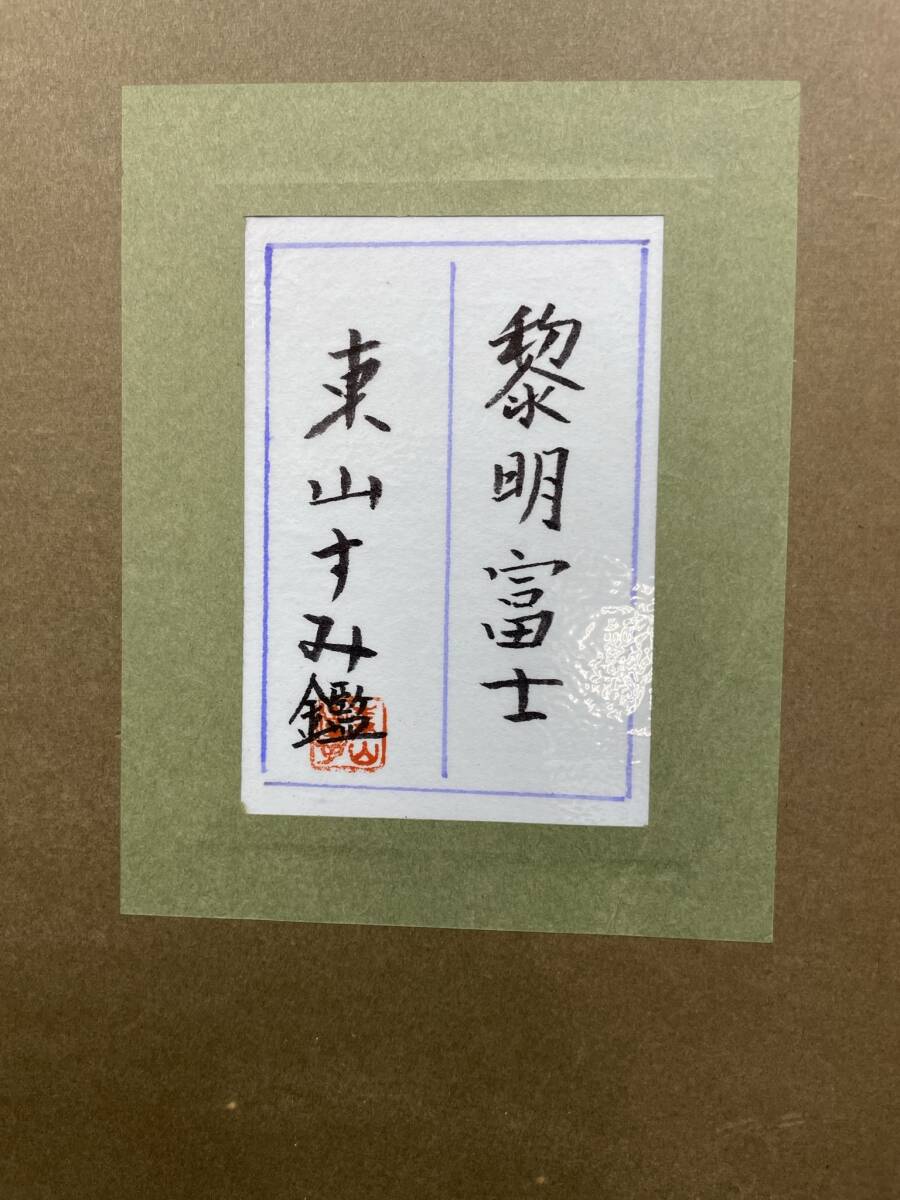 黎明富士
東山すみ鑑